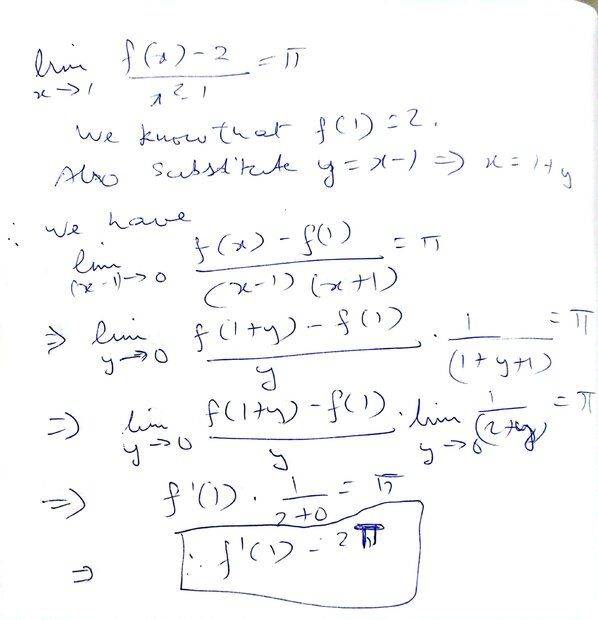 lim x→1 (f(x)-2)/(x²-1) = π
We know that f(1) = 2.
Also substitute y = x-1 => x = 1+y
∴ we have
lim (x-1)→0 (f(x) - f(1))/((x-1) (x+1)) = π
=> lim y→0 (f(1+y) - f(1))/y · 1/(1+y+1) = π
=> lim y→0 (f(1+y) - f(1))/y · lim y→0 1/(2+y) = π
=> f'(1) · 1/(2+0) = π
=> ∴ f'(1) = 2π